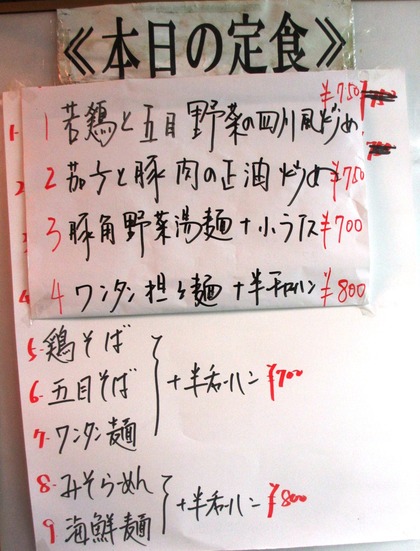 《本日の定食》
1 若鶏と五目野菜の四川風炒め ¥750
2 茄子と豚肉の正油炒め ¥750
3 豚角野菜湯麺+小ライス ¥700
4 ワンタン担々麺+半チャーハン ¥800
5. 鶏そば
6. 五目そば +半チャーハン ¥700
7. ワンタン麺
8. みそらーめん
+半チャーハン ¥800
9. 海鮮麺